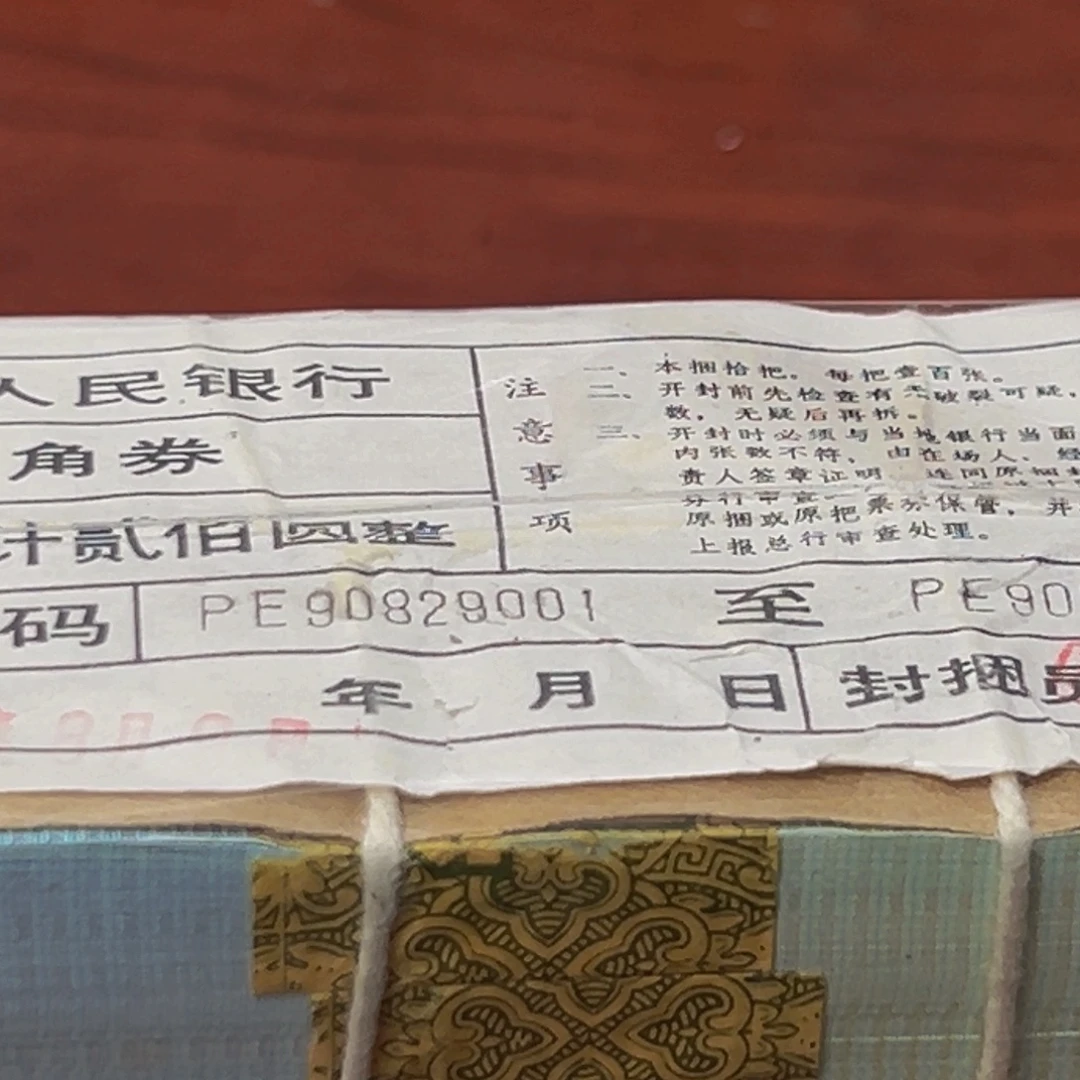 人民银行
角券
计贰佰四整
码 PE90829001 至 PE90
年 月 日 封捆员
注意事项
一、本捆拾把。每把壹百张。
二、开封前先检查有无破裂可疑,
数,无疑后再拆。
三、开封时必须与当地银行当面
内张数不符,由在场人、经
责人签章证明 连同原捆
分行审查 票币保管,并
原捆或原把
上报总行审查处理。